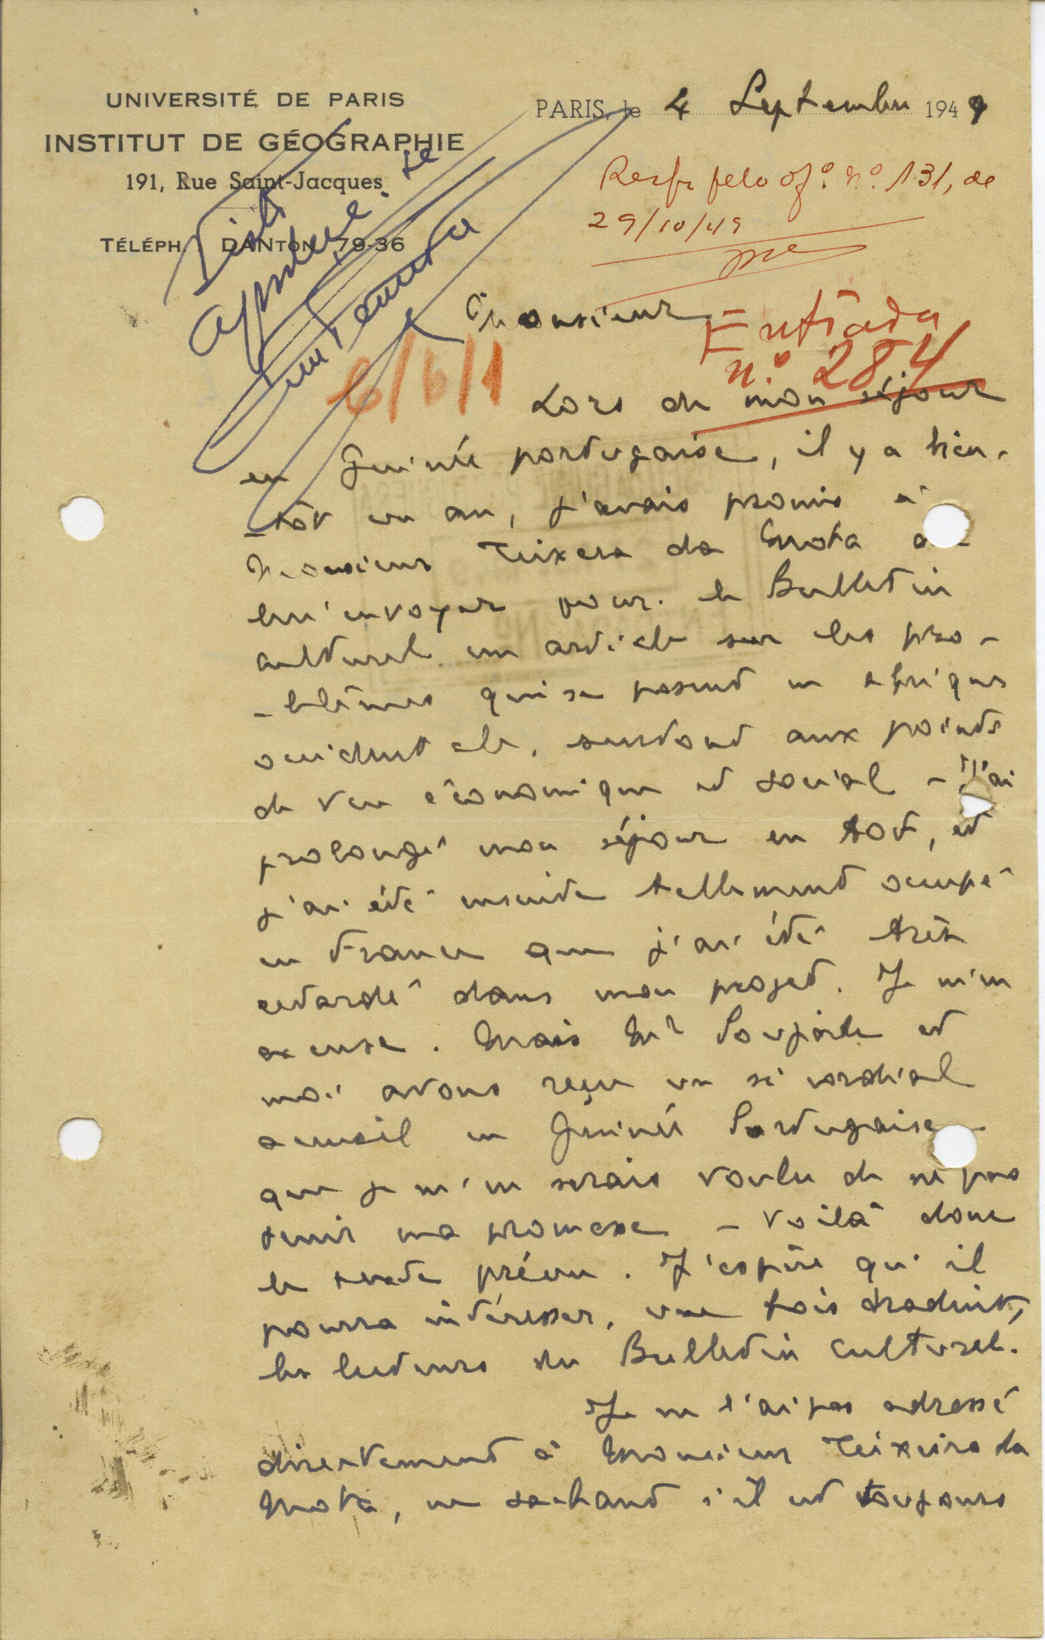 UNIVERSITÉ DE PARIS
INSTITUT DE GÉOGRAPHIE
191, Rue Saint-Jacques
TÉLÉPH. : DANTON 79-36
PARIS, le 4 Septembre 1949
Resp. pelo of.º n.º 131, de
29/10/49
Entrada
n.º 284
6/6/1
Monsieur
Lors de mon séjour
en Guinée portugaise, il y a bien-
-tôt un an, j'avais promis à
Monsieur Teixera da Mota de
lui envoyer pour le Bulletin
culturel un article sur les pro-
-blèmes qui se posent en Afrique
occidentale, surtout aux points
de vue économique et social - J'ai
prolongé mon séjour en AOF, et
j'ai été ensuite tellement occupé
en France que j'ai été très
retardé dans mon projet. Je m'en
excuse. Mais Mr Poujade et
moi avons reçu un si cordial
accueil en Guinée Portugaise
que je m'en serais voulu de ne pas
tenir ma promesse - Voilà donc
le texte prévu. J'espère qu'il
pourra intéresser, une fois traduit,
les lecteurs du Bulletin Culturel.
Je ne l'ai pas adressé
directement à Monsieur Teixeira da
Mota, ne sachant s'il est toujours